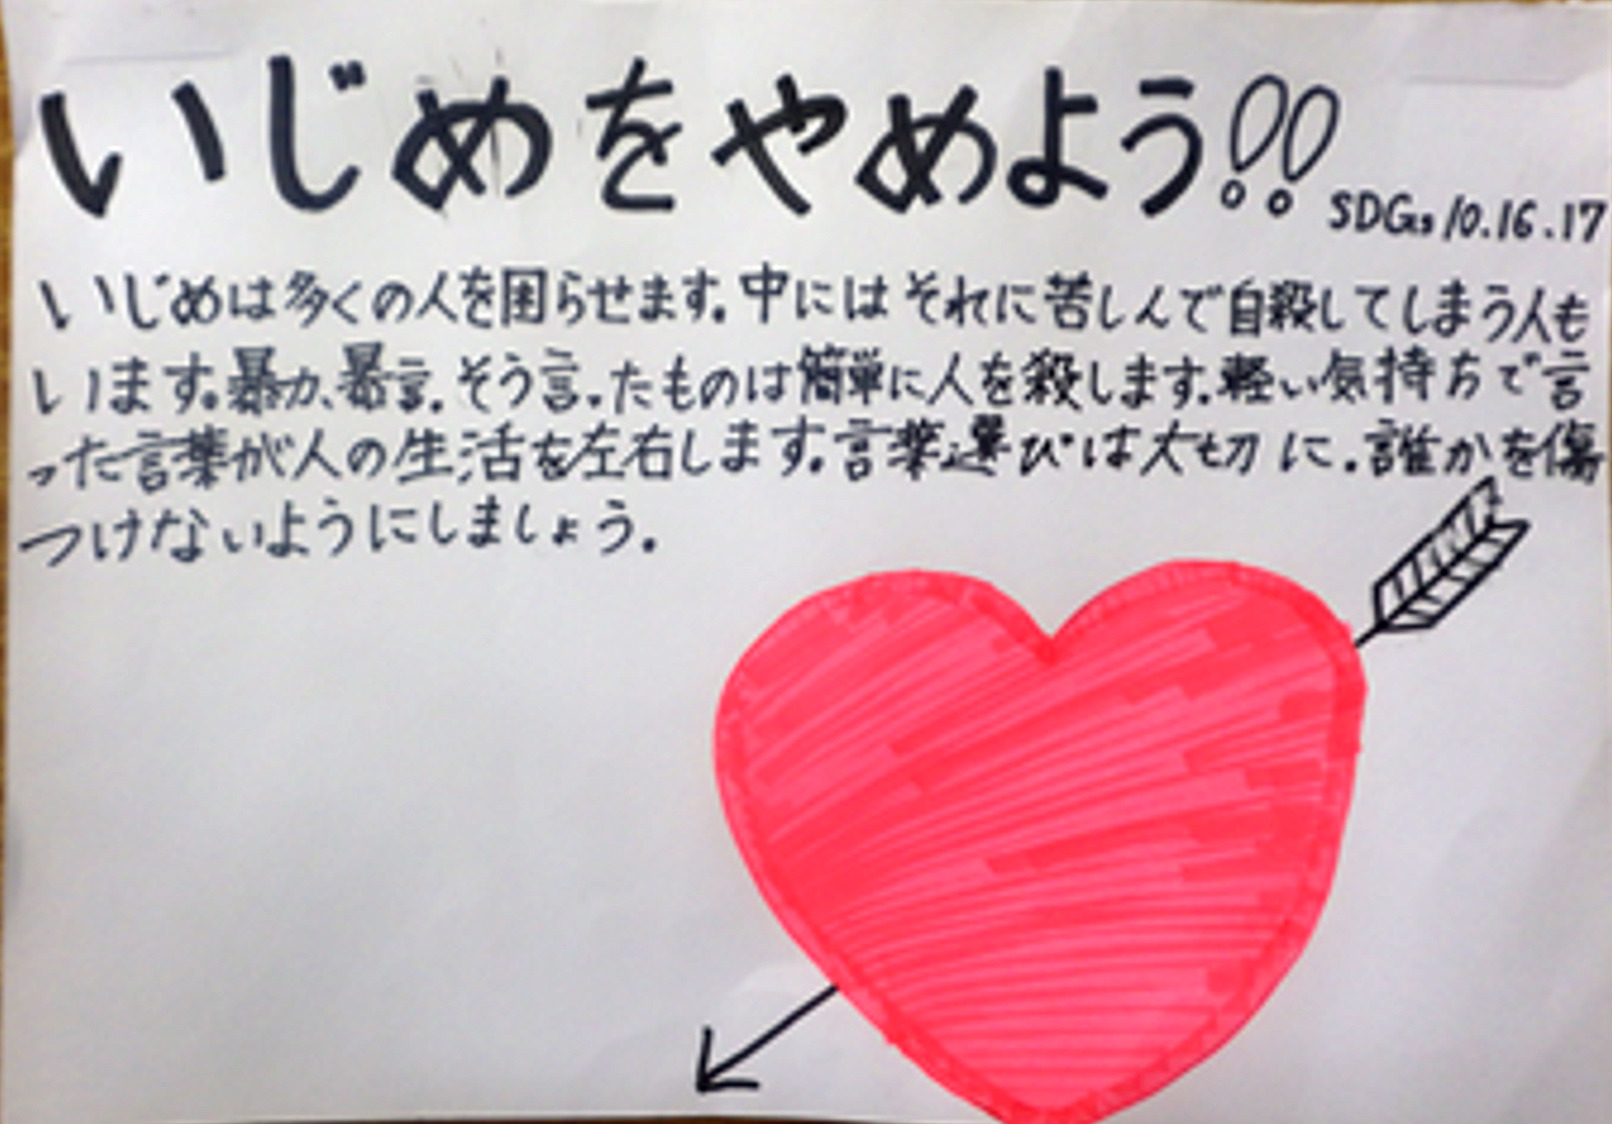 いじめをやめよう!!
SDGs 10.16.17
いじめは多くの人を困らせます。中にはそれに苦しんで自殺してしまう人も
います。暴力、暴言。そう言ったものは簡単に人を殺します。軽い気持ちで言
った言葉が人の生活を左右します。言葉選びは大切に。誰かを傷
つけないようにしましょう。